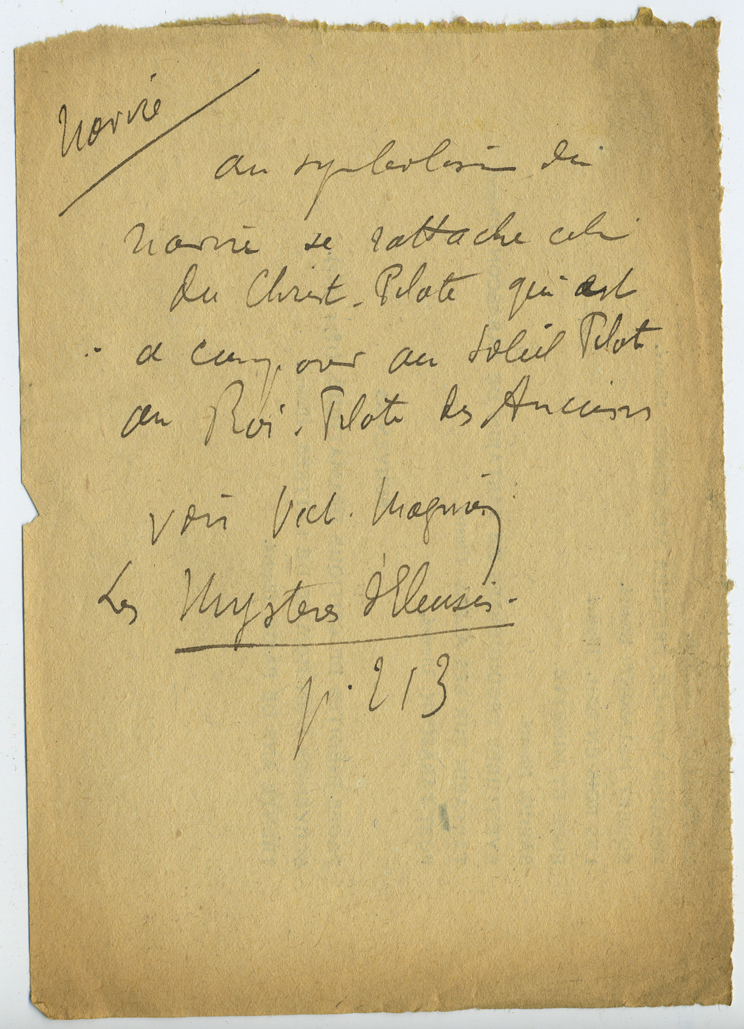 Navire
au symbolisme du
navire se rattache celui
du Christ-Pilote qui est
à comparer au Soleil Pilote
au Roi-Pilote des Anciens
voir Vict. Magnien
Les Mystères d'Eleusis.
p. 213